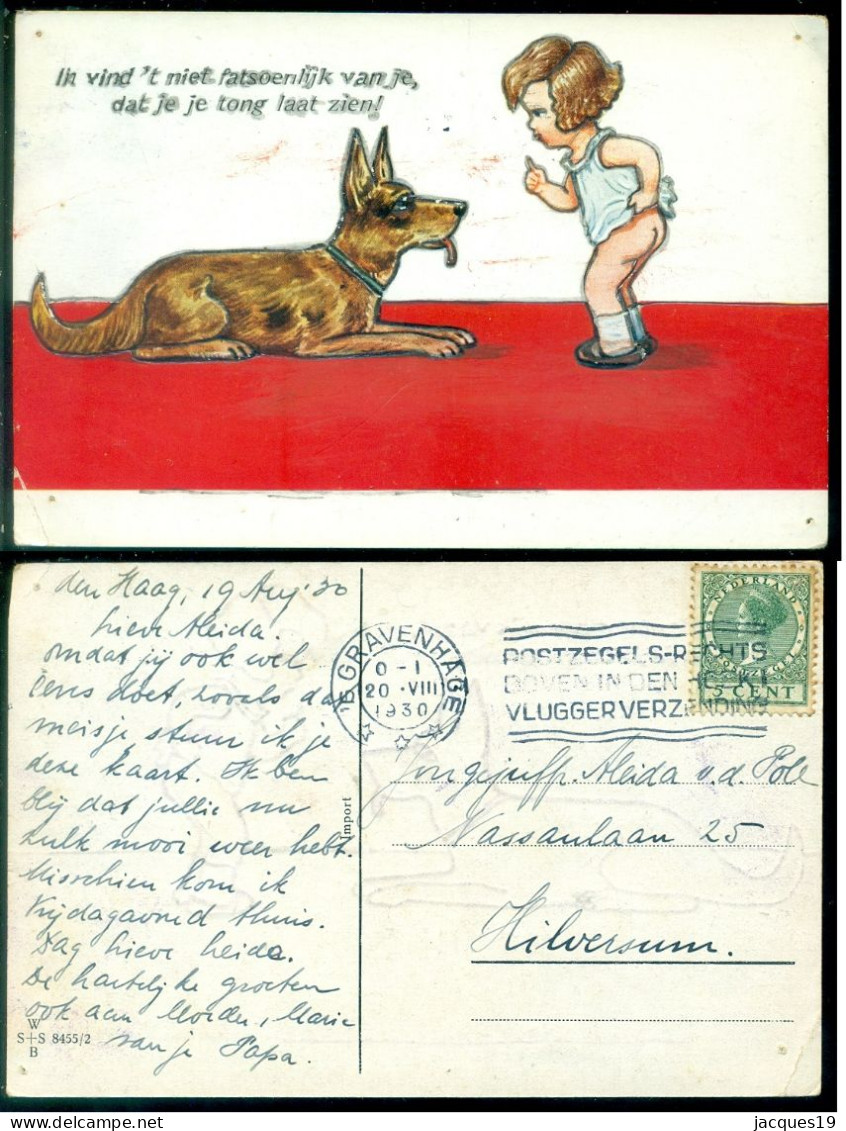 Ik vind 't niet fatsoenlijk van je,
dat je je tong laat zien!
den Haag, 19 Aug '30
lieve Aleida.
omdat jij ook wel
eens doet, zooals dat
meisje stuur ik je
deze kaart. Ik ben
blij dat jullie nu
zulk mooi weer hebt.
Misschien kom ik
Vrijdagavond thuis.
Dag lieve heide.
De hartelijke groeten
ook aan Moeder, Marie
van je Papa.
W
S+S 8455/2
B
Import
'S GRAVENHAGE
0-1
20.VIII
1930
POSTZEGELS-RECHTS
BOVEN IN DEN
VLUGGER VERZENDING
NEDERLAND
POSTZEGEL
5 CENT
Jongejuffr. Aleida v.d. Pole
Nassaulaan 25
Hilversum.
jacques19